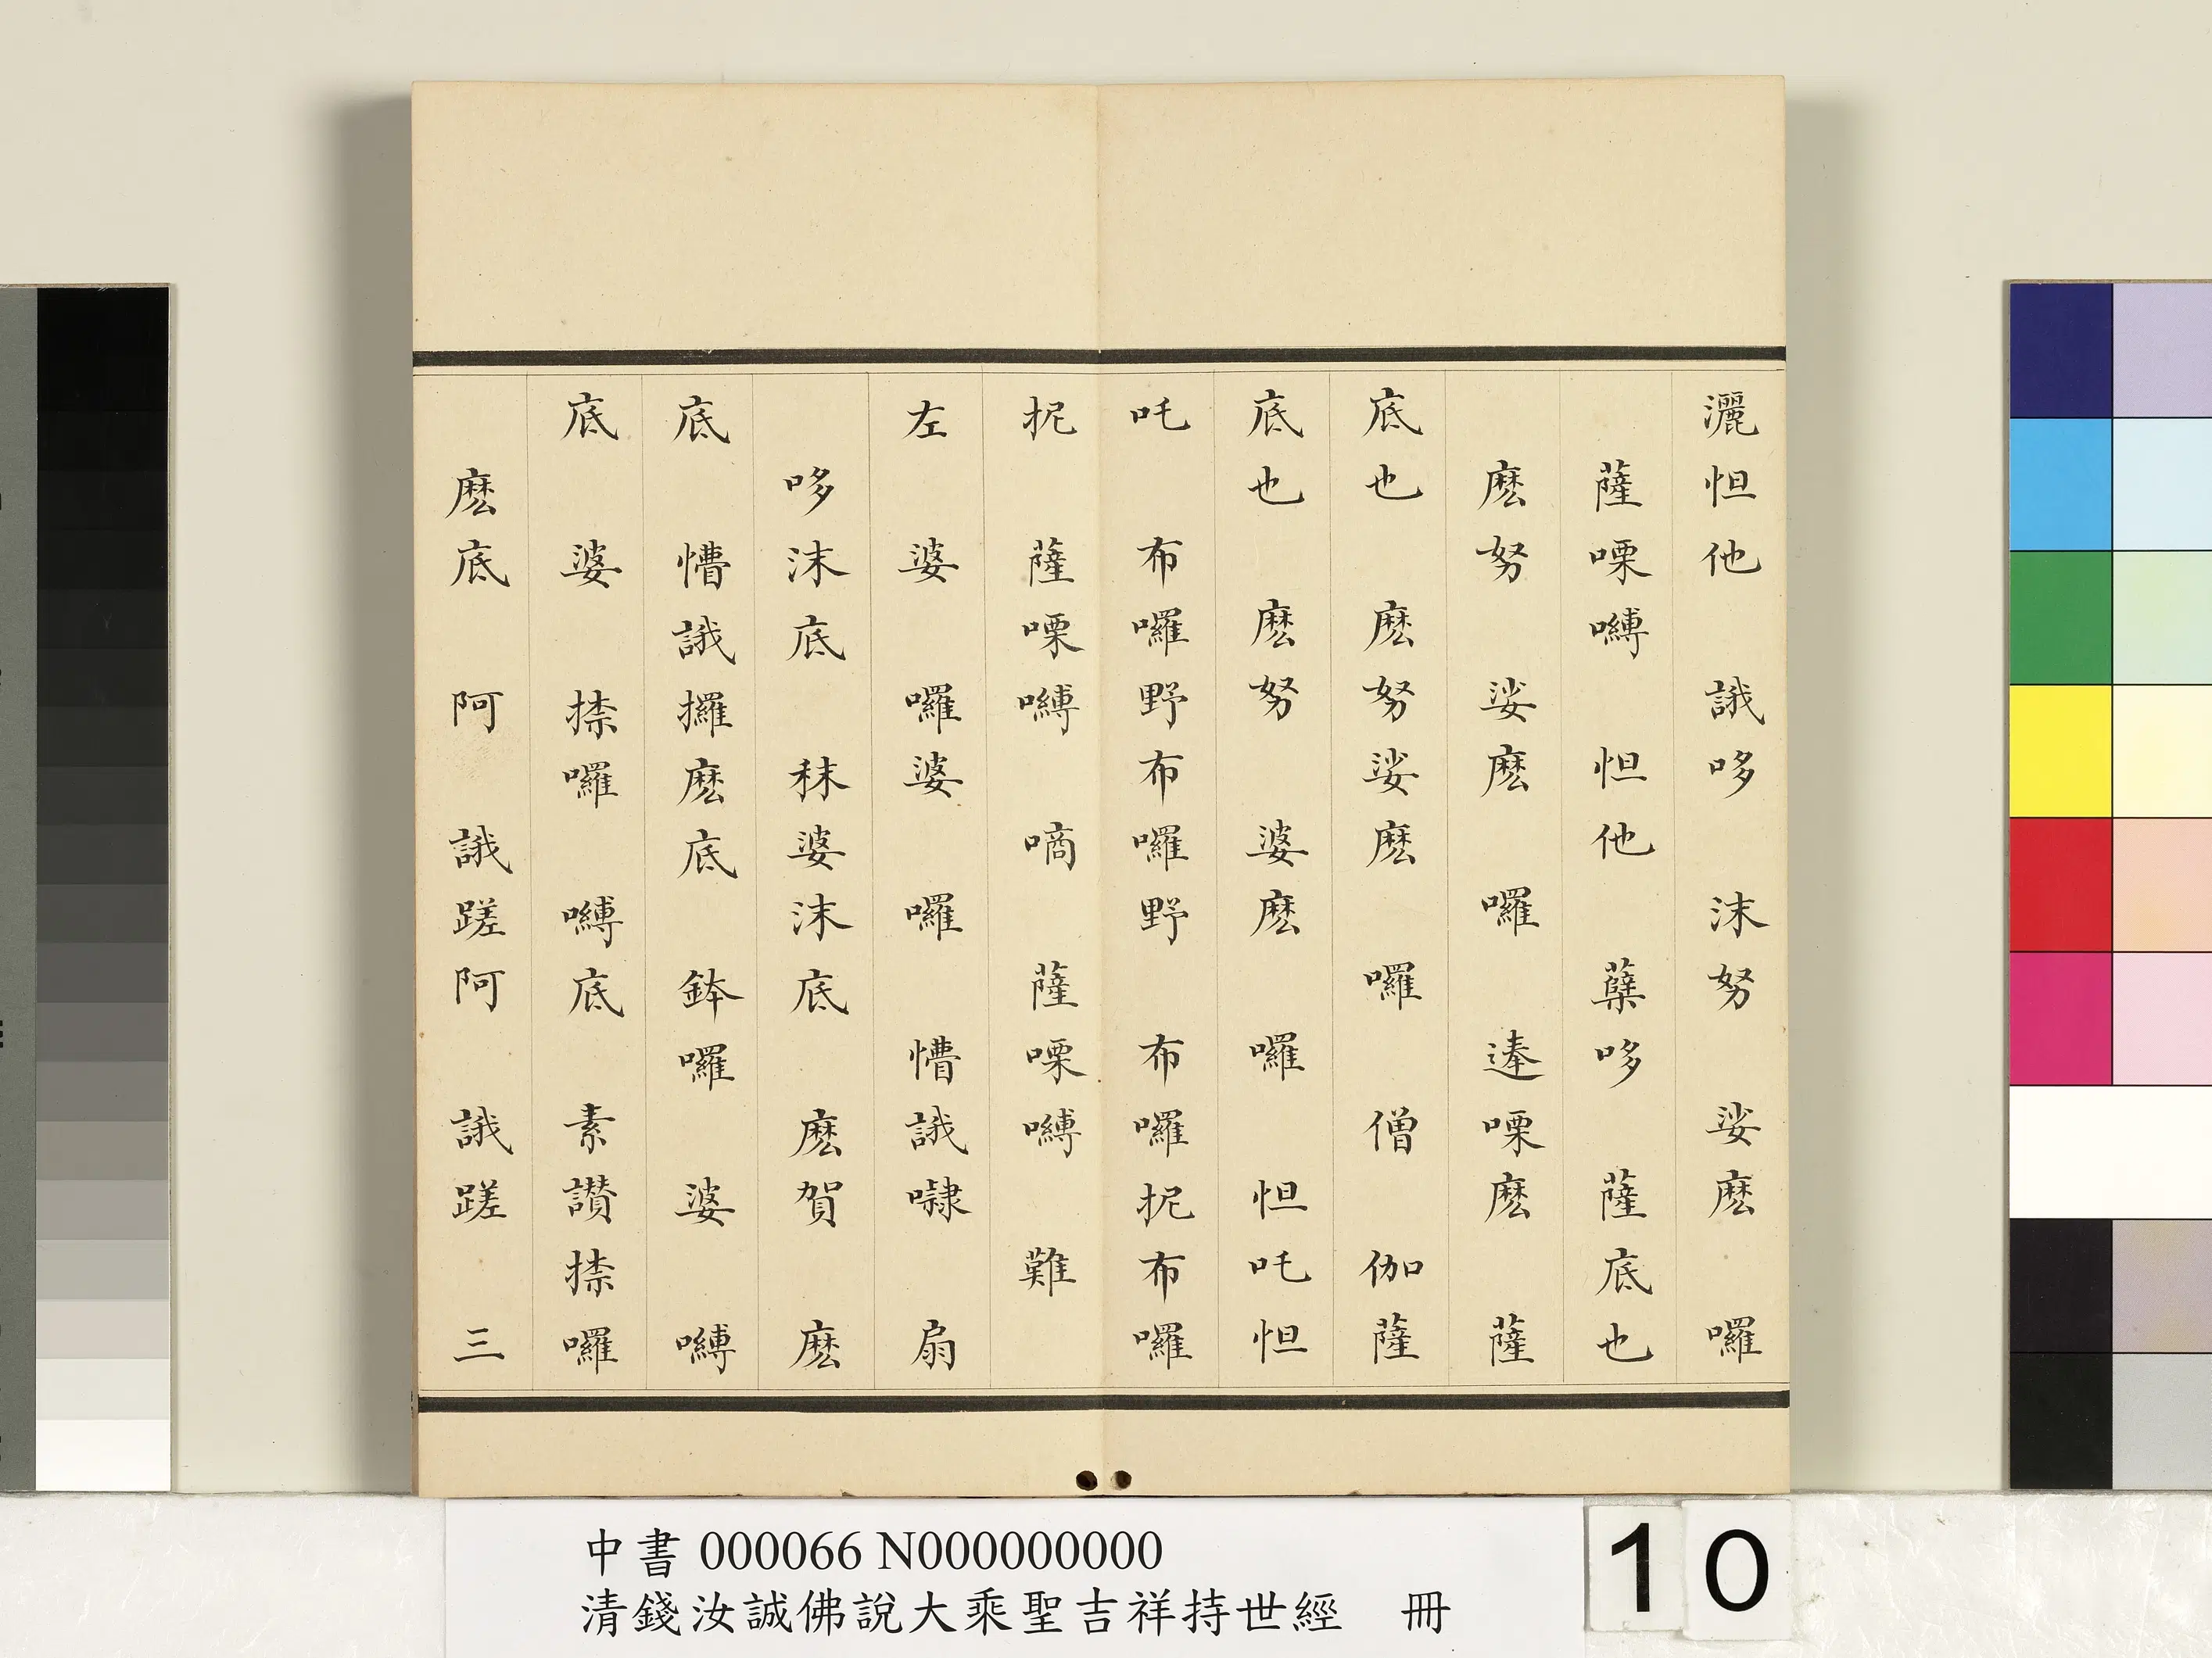 灑怛他 誐哆 沫努 娑麼 囉
薩㗚嚩 怛他 蘖哆 薩底也
麼努 娑麼 囉 達㗚麼 薩
底也 麼努娑麼 囉 僧 伽薩
底也 麼努 娑麼 囉 怛吒怛
吒 布囉野布囉野 布囉抳布囉
抳 薩㗚嚩 嘀 薩㗚嚩 難
左 婆 囉婆 囉 懵誐㘑 扇
哆沫底 秣婆沫底 麼賀 麼
底 懵誐攞麼底 鉢囉 婆 嚩
底 婆 捺囉 嚩底 素讚捺囉
麼底 阿 誐蹉阿 誐蹉 三
中書 000066 N000000000
清錢汝誠佛說大乘聖吉祥持世經 冊
10